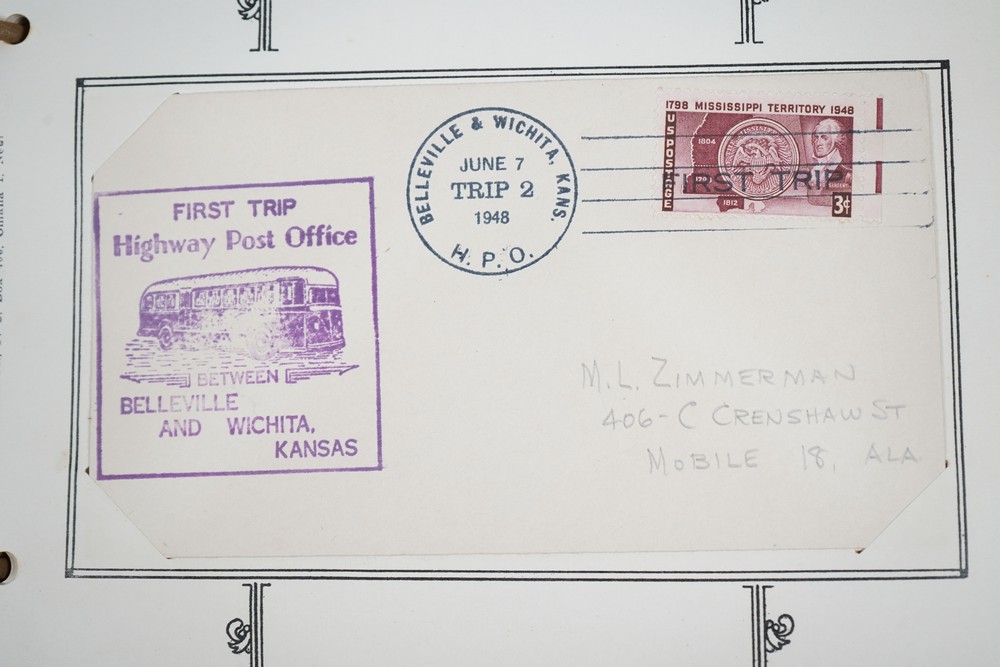 FIRST TRIP
Highway Post Office
BETWEEN
BELLEVILLE
AND WICHITA,
KANSAS
BELLEVILLE & WICHITA, KANS.
JUNE 7
TRIP 2
1948
H. P. O.
1798 MISSISSIPPI TERRITORY 1948
U S POSTAGE
1804
1812
SARGENT
3¢
FIRST TRIP
M. L. ZIMMERMAN
406-C CRENSHAW ST
MOBILE 18, ALA